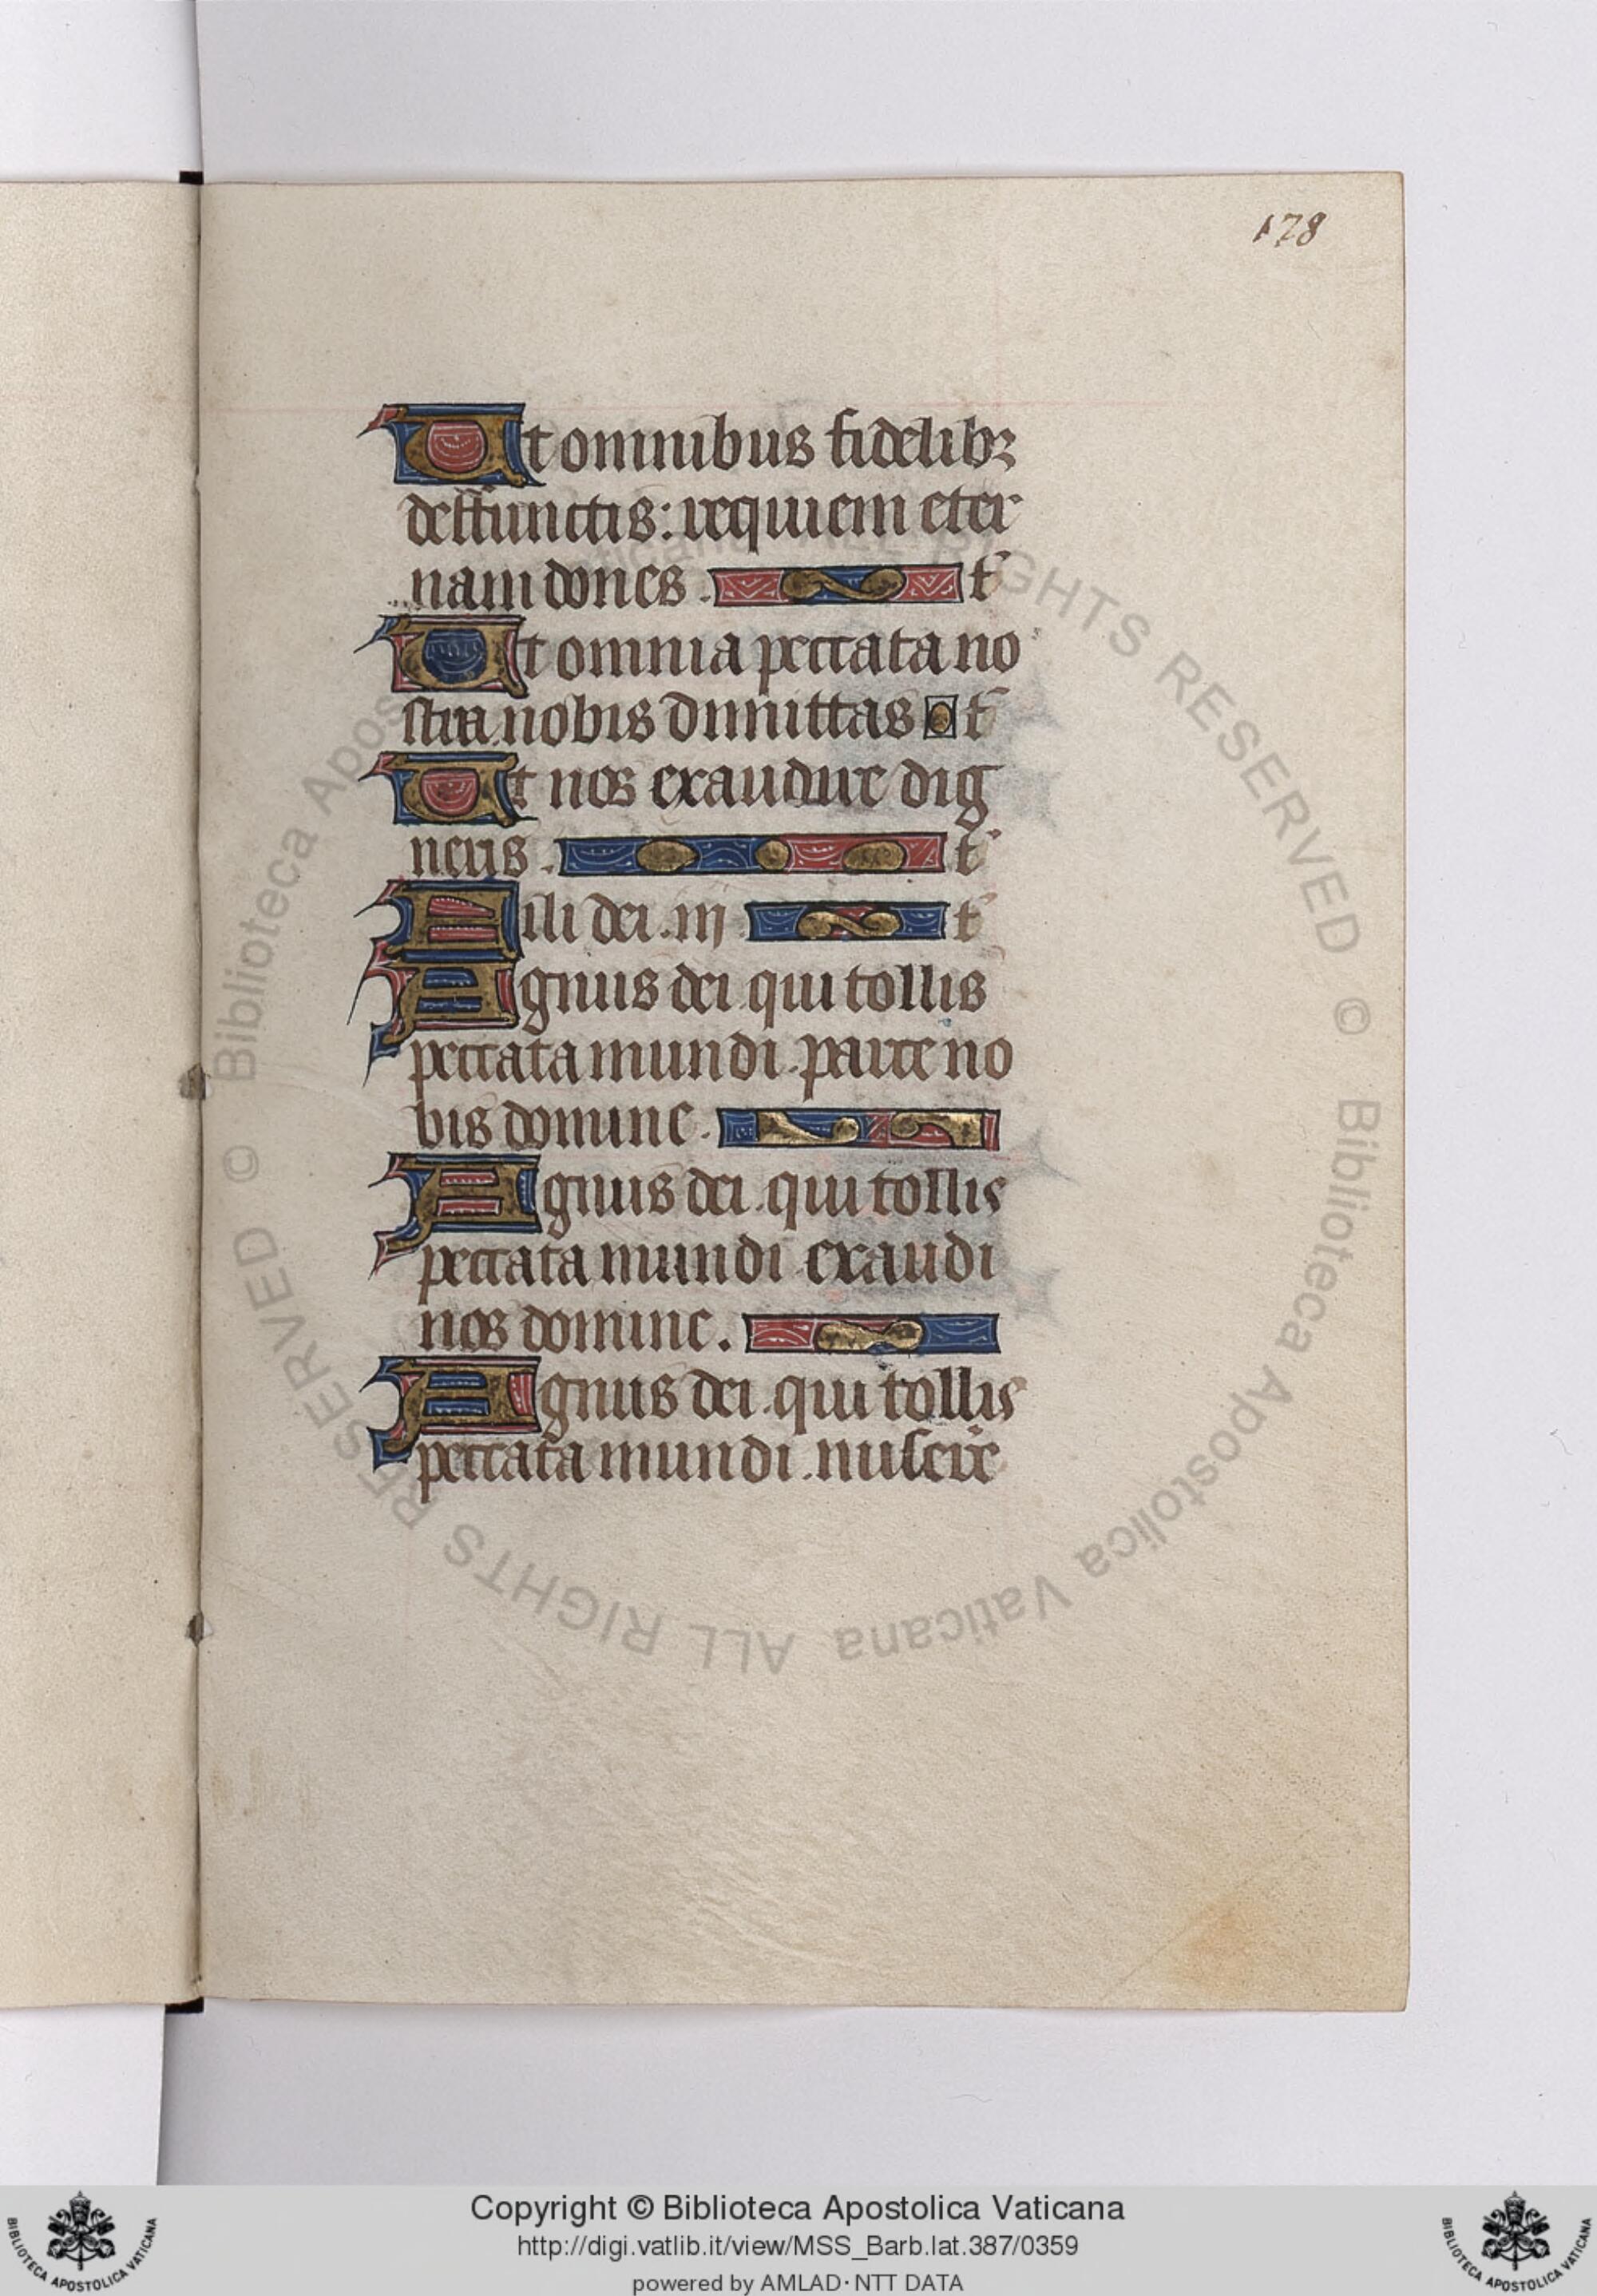 178
Ut omnibus fidelibꝫ
deffunctis: requiem eter
nam dones. t̄
Ut omnia peccata no
stra nobis dimittas t̄
Ut nos exaudire dig
neris. t̄
Fili dei. iij t̄
Agnus dei qui tollis
peccata mundi. parce no
bis domine.
Agnus dei. qui tollis
peccata mundi exaudi
nos domine.
Agnus dei. qui tollis
peccata mundi. misere
Copyright © Biblioteca Apostolica Vaticana
http://digi.vatlib.it/view/MSS_Barb.lat.387/0359
powered by AMLAD·NTT DATA
BIBLIOTECA APOSTOLICA VATICANA
BIBLIOTECA APOSTOLICA VATICANA
© Biblioteca Apostolica Vaticana ALL RIGHTS RESERVED © Biblioteca Apostolica Vaticana ALL RIGHTS RESERVED